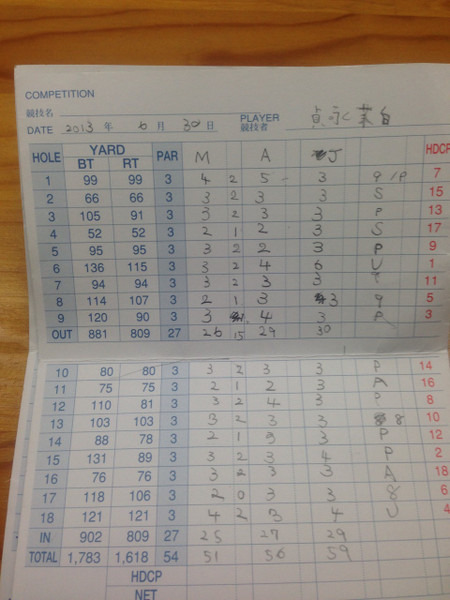 COMPETITION
競技名
DATE 2013 年 6 月 30 日 PLAYER 競技者
HOLE YARD BT RT PAR M A J HDCP
1 99 99 3 4 2 5 3 9/P 7
2 66 66 3 3 2 3 3 S 15
3 105 91 3 3 2 3 3 P 13
4 52 52 3 2 1 2 3 S 17
5 95 95 3 3 2 2 3 P 9
6 136 115 3 3 2 4 6 U 1
7 94 94 3 3 2 3 3 11
8 114 107 3 2 1 3 3 9 5
9 120 90 3 3 4 3 P 3
OUT 881 809 27 26 15 29 30
10 80 80 3 3 2 3 3 P 14
11 75 75 3 2 1 2 3 A 16
12 110 81 3 3 2 4 3 P 8
13 103 103 3 3 2 3 3 8 10
14 88 78 3 2 1 3 3 P 12
15 131 89 3 3 2 3 4 P 2
16 76 76 3 3 2 3 3 A 18
17 118 106 3 2 0 3 3 8 6
18 121 121 3 4 2 3 4 U 4
IN 902 809 27 25 27 29
TOTAL 1,783 1,618 54 51 56 59
HDCP
NET